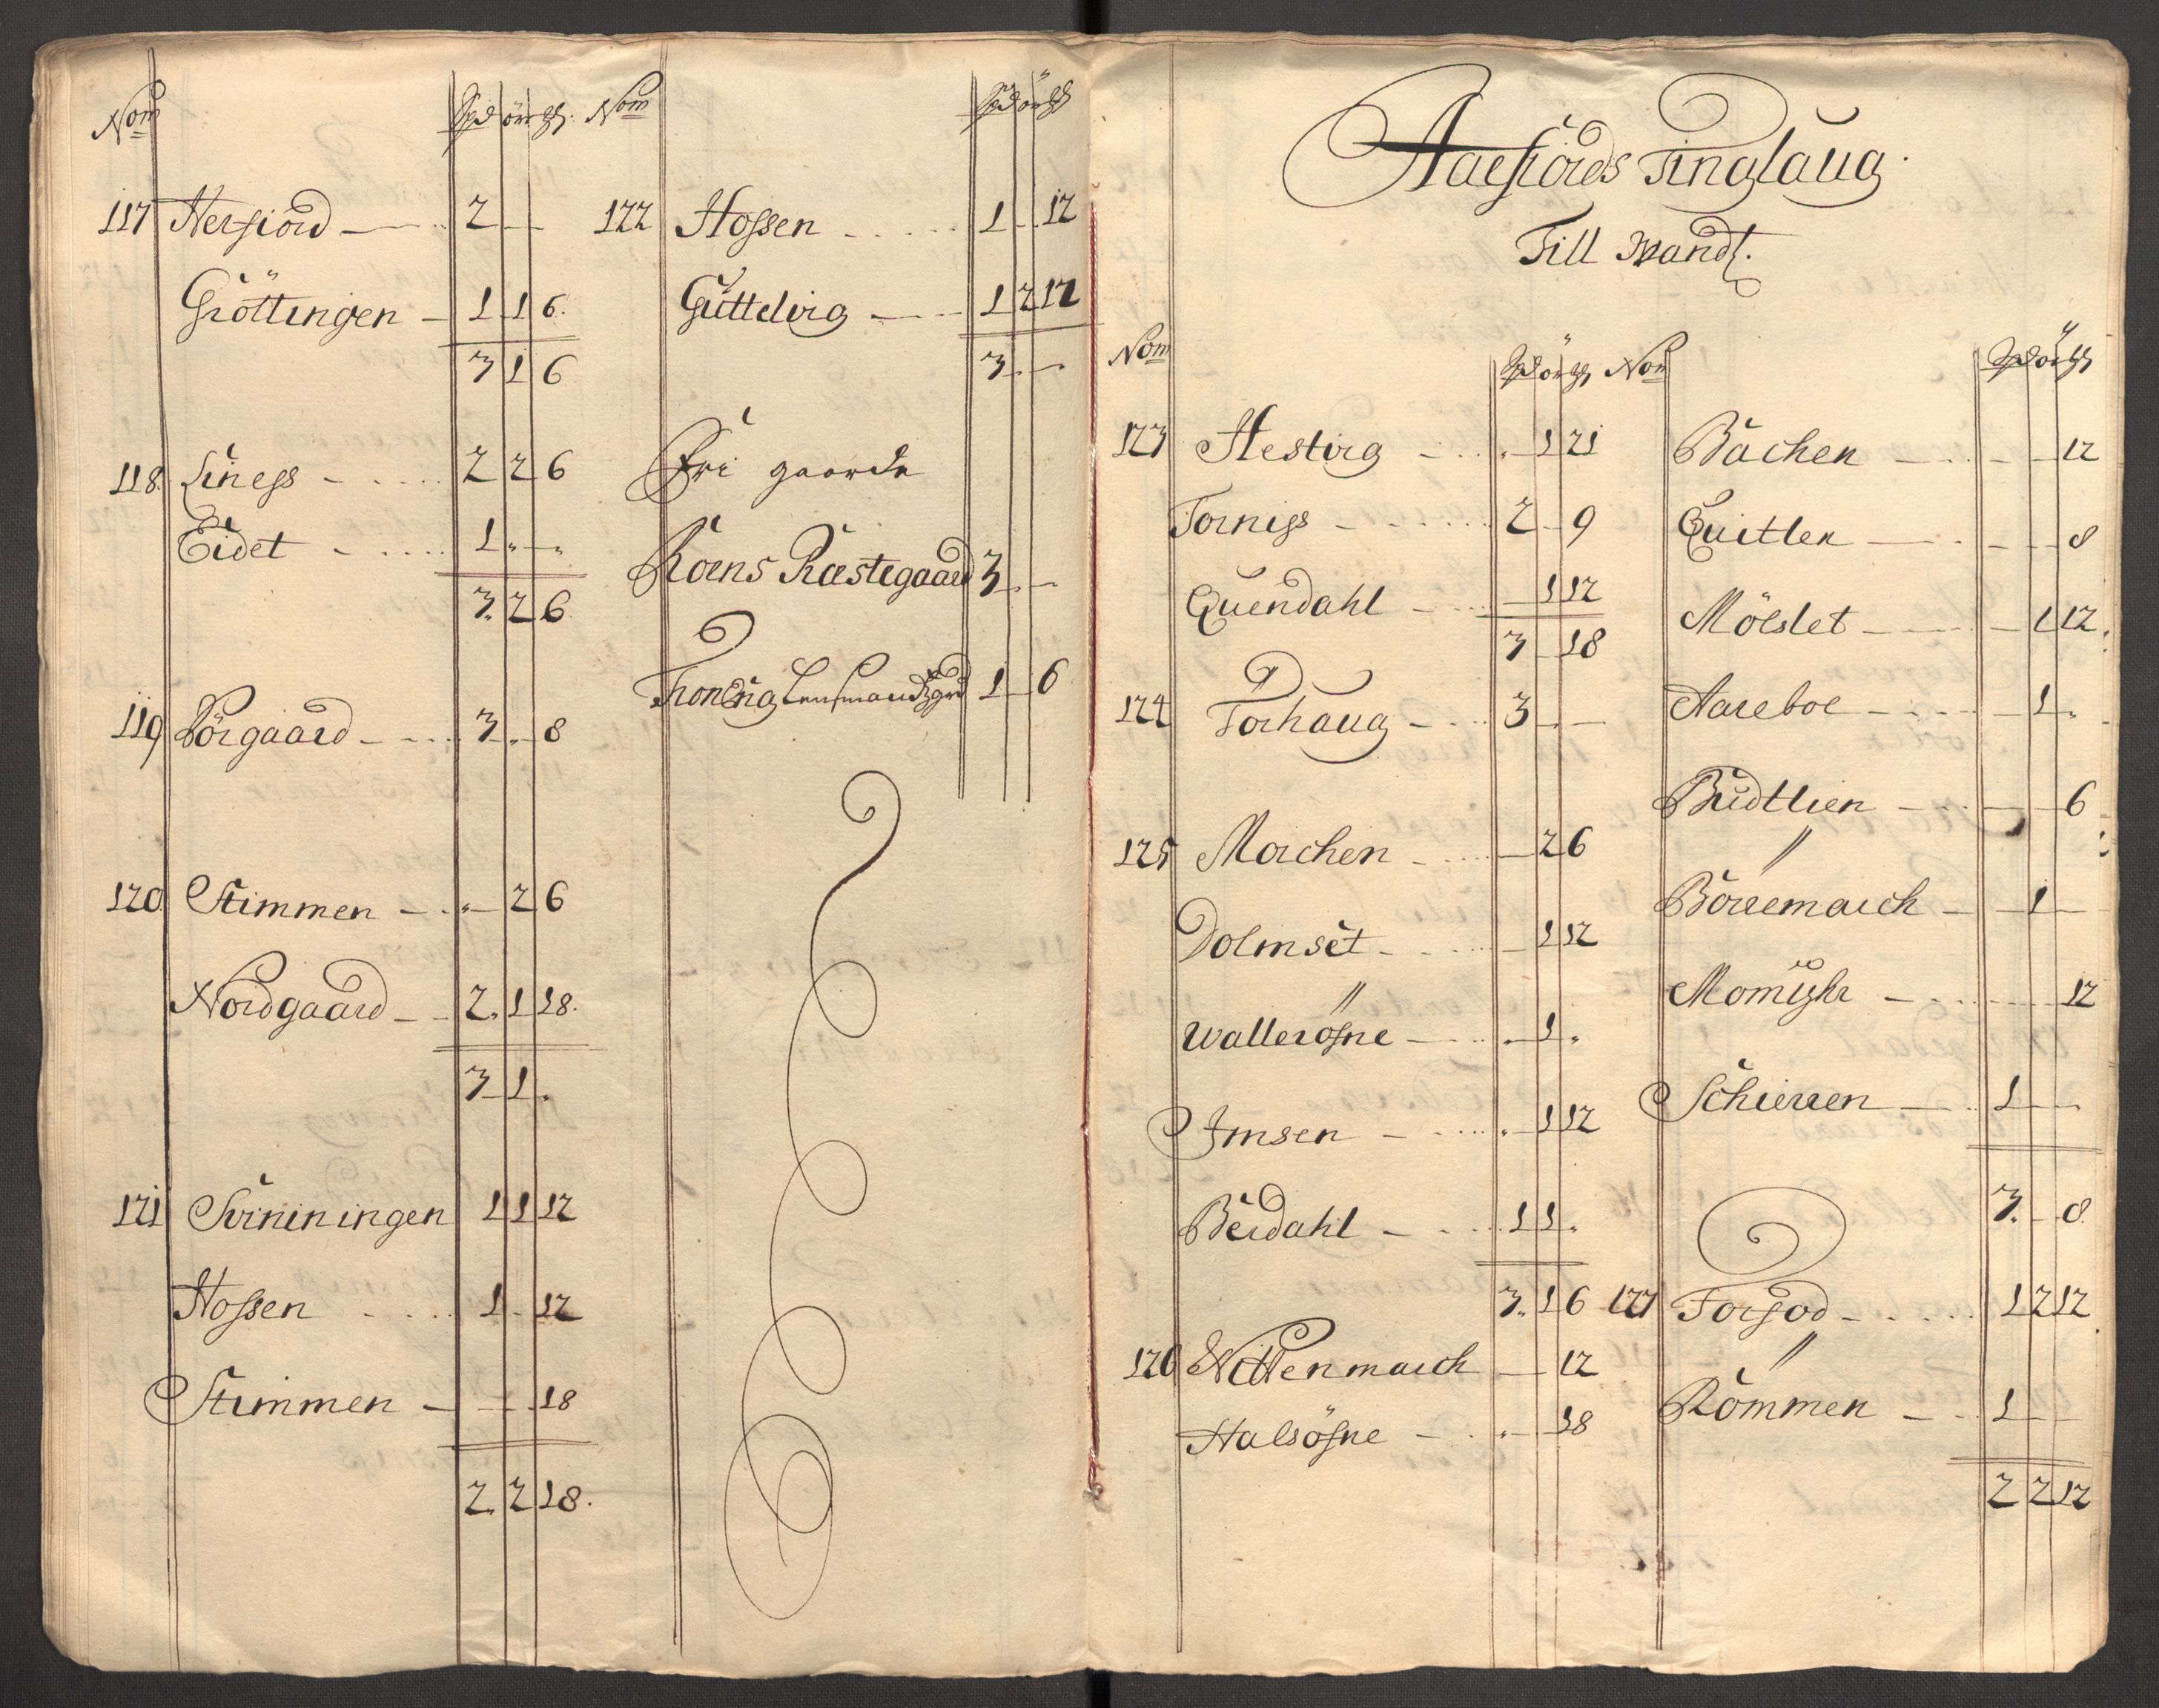 Nom Spd ör ℔
117 Herfiord — 2 —
Gröttingen — 1 1 6.
3 1 6
118. Liness - 2 2 6
Eidet - 1
3. 2 6
119 Börgaard - 3. - 8
120 Stimmen - 2 6
Nordgaard - 2. 1 18.
3 1
121 Svininingen 1 1 12
Hossen 1 - 12
Stimmen - 18
2. 2 18.
Nom Spd ör ℔
122 Hossen 1 12
Güttelvig — 1 2 12
3. —
Fri gaarde
Röens Præstegaard 3. —
Tronsng Lensmandzgrd 1 — 6
Aaefiords Tinglaug.
Till Mandt.
Nom Spd ör ℔
123 Hestvig - 1 21
Tornigs - 2 - 9
Quendahl - 1 12
3 18
124 Torhaug - 3 —
125 Morchen - 2 6
Dolmset - 1 12
〃
Wallersösne — 1
Imsen - 1 12
Berdahl - 1 1.
3. 1 6
126 Nittenmarch — 12
Halsösne - 18
Nom Spd ör ℔
Bachen — 12
Quitlen — 8
Mölslet — 1 12
Aareboe - 1
Büdtlien - 6
〃
Börremarch - 1 —
Momyhr - 12
Schierren — 1 —
3. - 8
127 Forsod - 1 2 12
〃
Römmen - 1 —
2 2 12